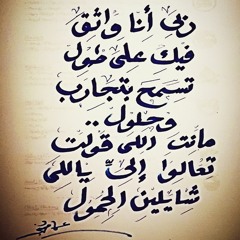 ربي أنا واثق
فيك على طول
تسمح بتجارب
وحلول ..
مانت اللى قولت
تعالوا إليَّ ياللى
شايلين الحمول